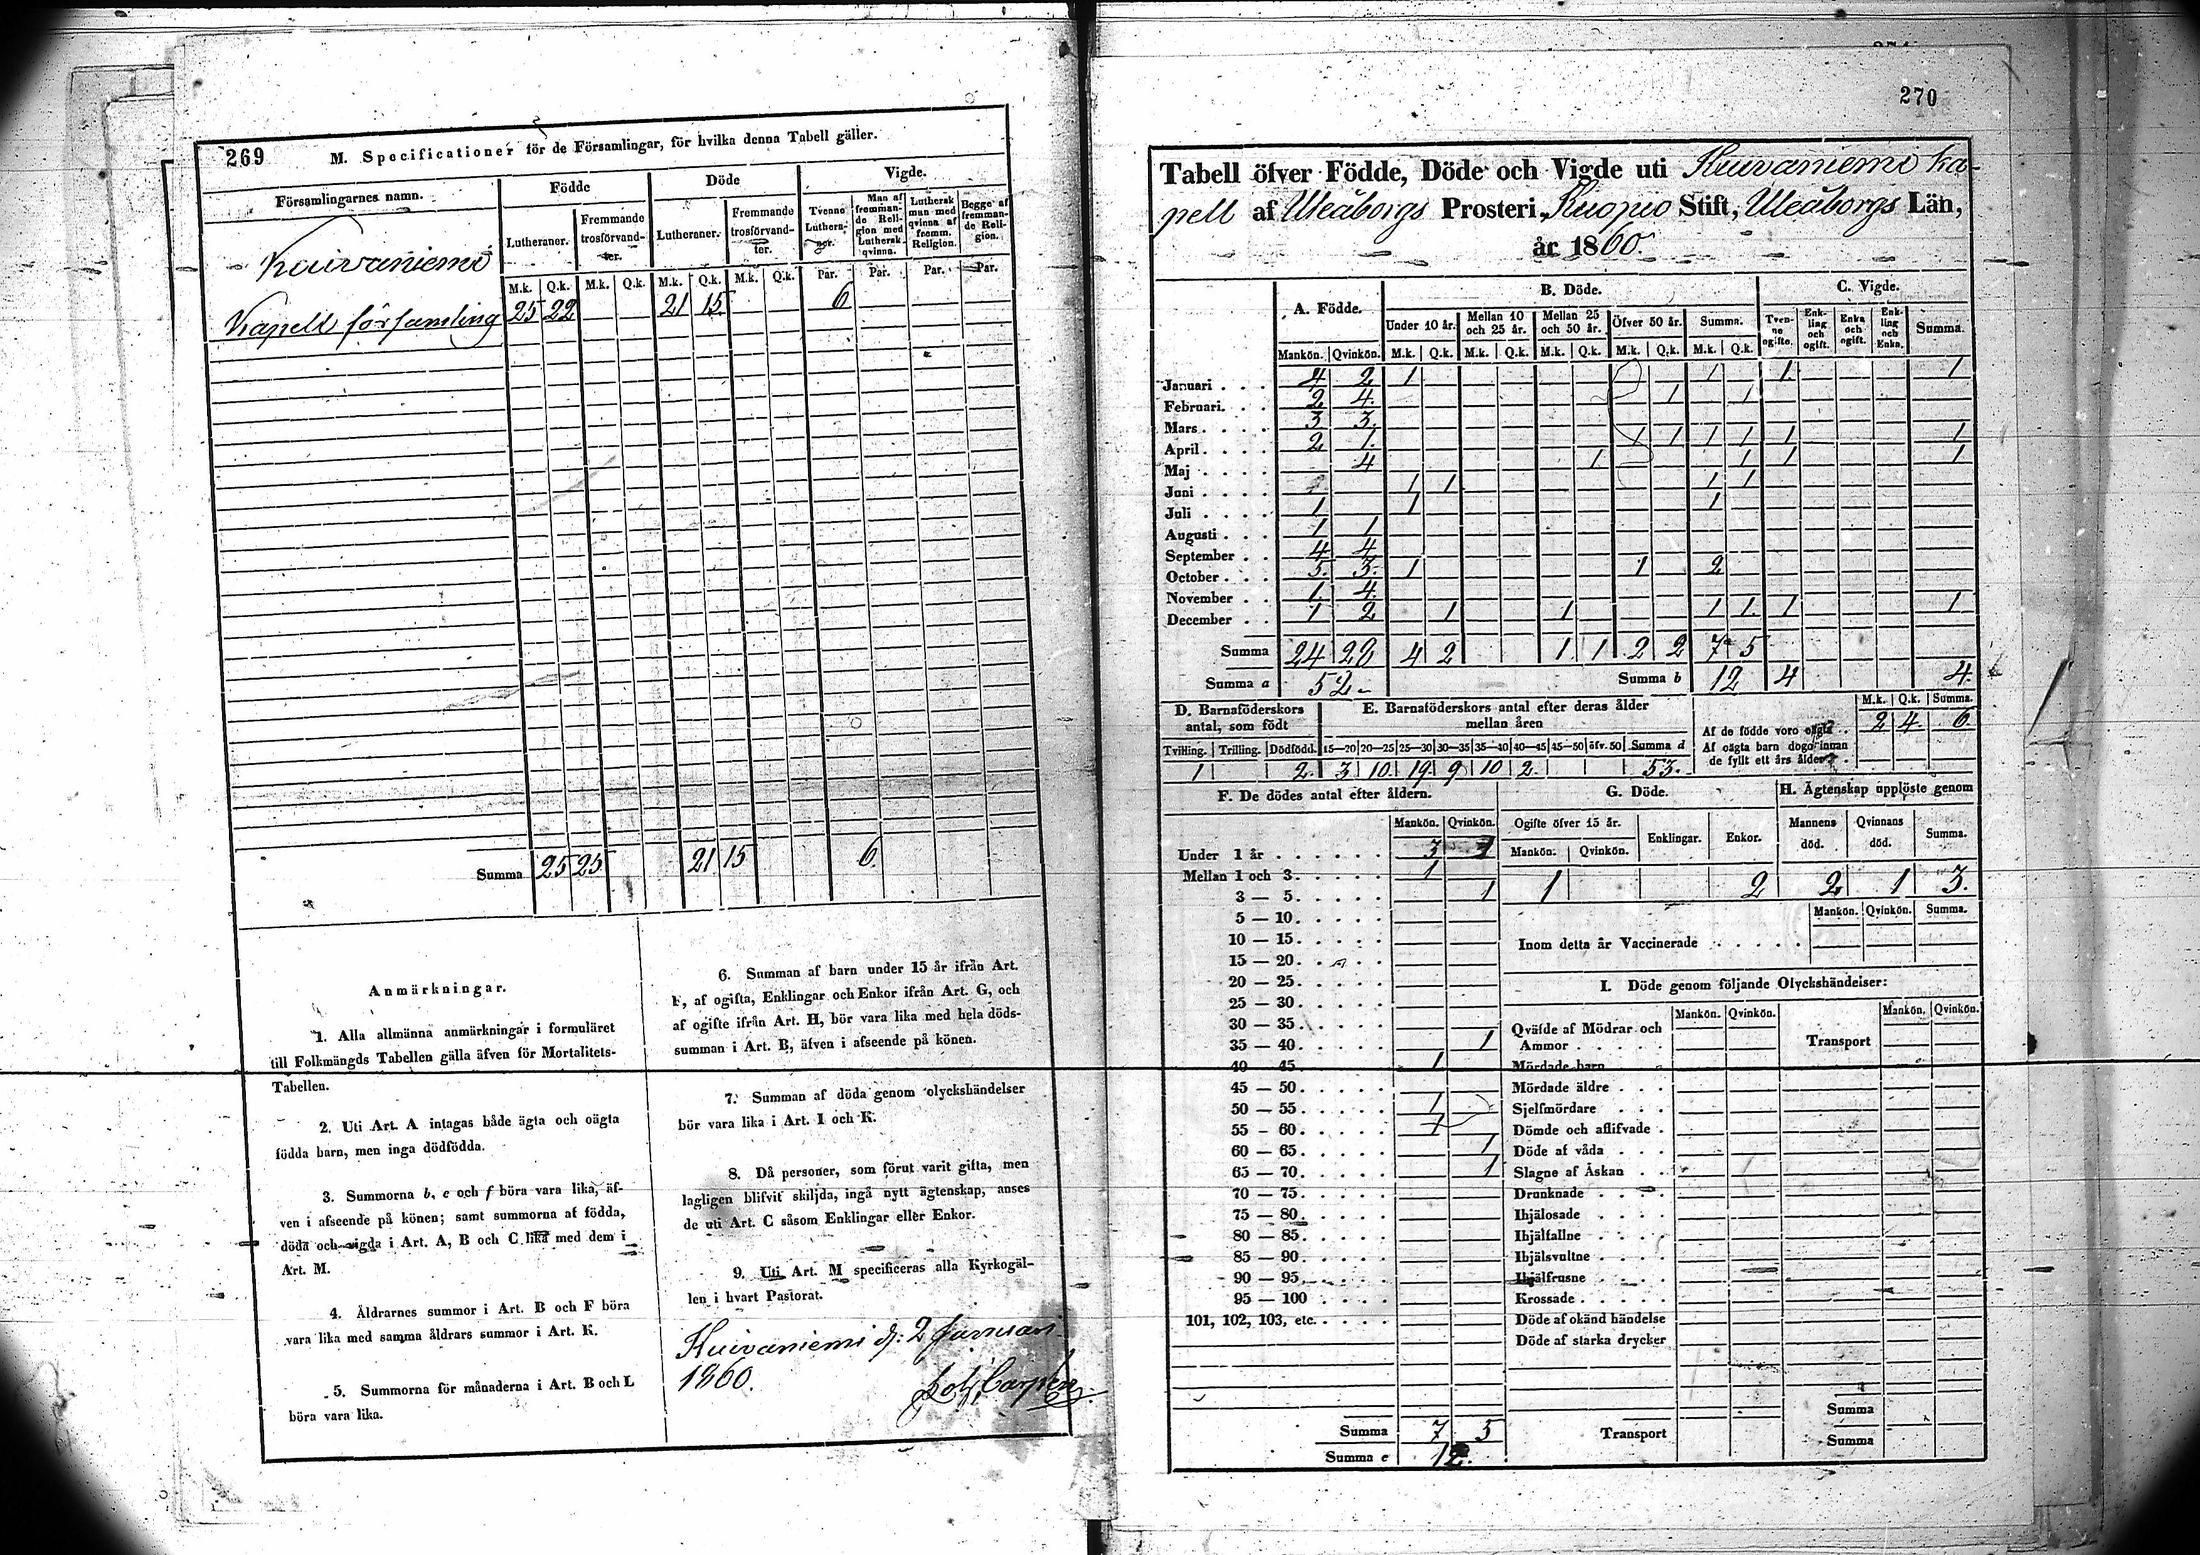 269
M. Specificationer för de Församlingar, för hvilka denna Tabell gäller.
Församlingarnes namn. Födde Döde Vigde.
Lutheraner. Fremmande trosförvandter. Lutheraner. Fremmande trosförvandter. Tvenne Lutheraner. Man af fremmande Religion med Luthersk qvinna. Luthersk man med qvinna af fremm. Religion. Begge af fremmande Religion.
M.k. Q.k. M.k. Q.k. M.k. Q.k. M.k. Q.k. Par. Par. Par. Par.
Kuivaniemi
Kapell församling 25 22 21 15 6
Summa 25 25 21 15 6.
Anmärkningar.
1. Alla allmänna anmärkningar i formuläret
till Folkmängds Tabellen gälla äfven för Mortalitets-
Tabellen.
2. Uti Art. A intagas både ägta och oägta
födda barn, men inga dödfödda.
3. Summorna b, e och f böra vara lika, äf-
ven i afseende på könen; samt summorna af födda,
döda och vigda i Art. A, B och C lika med dem i
Art. M.
4. Åldrarnes summor i Art. B och F böra
vara lika med samma åldrars summor i Art. K.
5. Summorna för månaderna i Art. B och L
böra vara lika.
6. Summan af barn under 15 år ifrån Art.
F, af ogifta, Enklingar och Enkor ifrån Art. G, och
af ogifte ifrån Art. H, bör vara lika med hela döds-
summan i Art. B, äfven i afseende på könen.
7. Summan af döda genom olyckshändelser
bör vara lika i Art. I och K.
8. Då personer, som förut varit gifta, men
lagligen blifvit skiljda, ingå nytt ägtenskap, anses
de uti Art. C såsom Enklingar eller Enkor.
9. Uti Art. M specificeras alla Kyrkogäl-
len i hvart Pastorat.
Kuivaniemi d: 2 Januari
1860.
270
Tabell öfver Födde, Döde och Vigde uti Kuivaniemi ka-
pell af Uleåborgs Prosteri, Kuopio Stift, Uleåborgs Län,
år 1860
A. Födde. B. Döde. C. Vigde.
Under 10 år. Mellan 10 och 25 år. Mellan 25 och 50 år. Öfver 50 år. Summa. Tvenne ogifte. Enkling och ogift. Enka och ogift. Enkling och Enka. Summa.
Mankön. Qvinkön. M.k. Q.k. M.k. Q.k. M.k. Q.k. M.k. Q.k. M.k. Q.k.
Januari . . . 4 2 1 1 1. 1
Februari. . . 2 4. 1 1
Mars . . . . 3 3.
April . . . . 2 1. 1 1 1 1 1 1
Maj . . . . 4 1 1 1 1
Juni . . . . 1 1 1 1
Juli . . . . 1 1 1
Augusti . . . 1 1
September . . 4 4
October . . . 5. 3. 1 1 2
November . . 1. 4.
December . . 1 2 1 1 1 1. 1 1
Summa 24 28 4 2 1 1 2 2 7 5
Summa a 52 Summa b 12 4 4.
D. Barnaföderskors antal, som födt
E. Barnaföderskors antal efter deras ålder mellan åren
M.k. Q.k. Summa.
Af de födde voro oägta . . 2 4 6.
Af oägta barn dogo innan
de fyllt ett års ålder .
Tvilling. Trilling. Dödfödd. 15—20 20—25 25—30 30—35 35—40 40—45 45—50 öfv. 50 Summa d
1 2. 3 10. 19. 9 10 2. 53.
F. De dödes antal efter åldern.
Mankön. Qvinkön.
Under 1 år . . . . . . 3
Mellan 1 och 3 . . . . . 1
3 — 5 . . . . . 1
5 — 10 . . . . .
10 — 15 . . . . .
15 — 20 . . . . .
20 — 25 . . . . .
25 — 30 . . . . .
30 — 35 . . . . .
35 — 40 . . . . . 1
40 — 45 . . . . . 1
45 — 50 . . . . .
50 — 55 . . . . . 1
55 — 60 . . . . . 1
60 — 65 . . . . . 1
65 — 70 . . . . . 1
70 — 75 . . . . .
75 — 80 . . . . .
80 — 85 . . . . .
85 — 90 . . . . .
90 — 95 . . . . .
95 — 100 . . . .
101, 102, 103, etc. . . . .
Summa 7 5
Summa e 12.
G. Döde.
Ogifte öfver 15 år. Enklingar. Enkor.
Mankön. Qvinkön.
1 2
H. Ägtenskap upplöste genom
Mannens död. Qvinnans död. Summa.
2 1 3.
Mankön. Qvinkön. Summa.
Inom detta år Vaccinerade . . . . .
I. Döde genom följande Olyckshändelser:
Mankön. Qvinkön. Mankön. Qvinkön.
Qväfde af Mödrar och
Ammor . . . . . Transport
Mördade barn
Mördade äldre . . .
Sjelfmördare . . .
Dömde och aflifvade .
Döde af våda . . .
Slagne af Åskan . .
Drunknade . . . .
Ihjälosade . . . .
Ihjälfallne . . . .
Ihjälsvultne . . . .
Ihjälfrusne . . . .
Krossade . . . . .
Döde af okänd händelse
Döde af starka drycker
Summa
Transport Summa